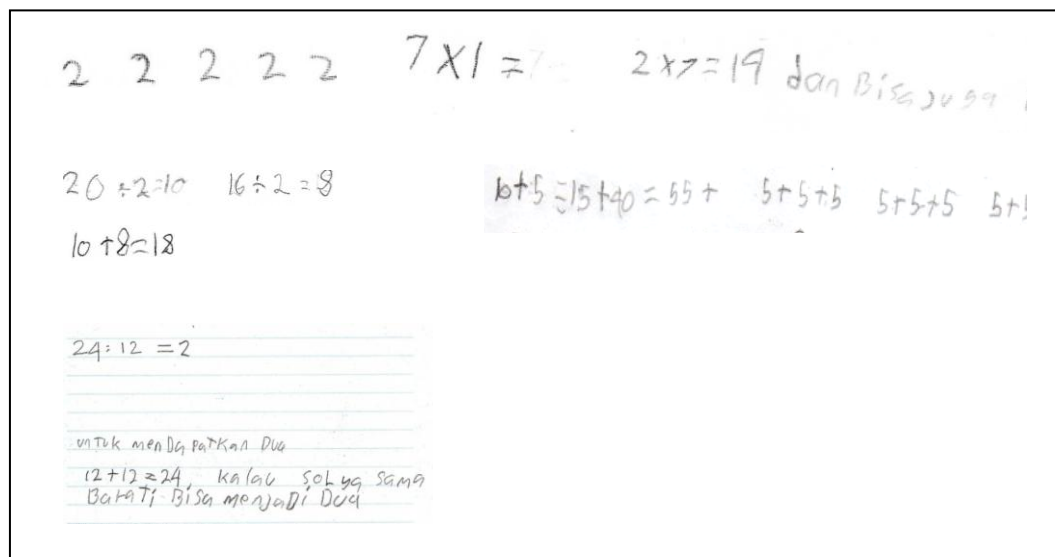 2 2 2 2 2 7 X 1 = 7 2 x 7 = 19 dan Bisa juga
20 ÷ 2 = 10 16 ÷ 2 = 8 10 + 5 = 15 + 40 = 55 + 5 + 5 + 5 5 + 5 + 5 5 +
10 + 8 = 18
24 : 12 = 2
untuk menDapatKan Dua
12 + 12 = 24, kalau sama
Barati Bisa menjaDi Dua